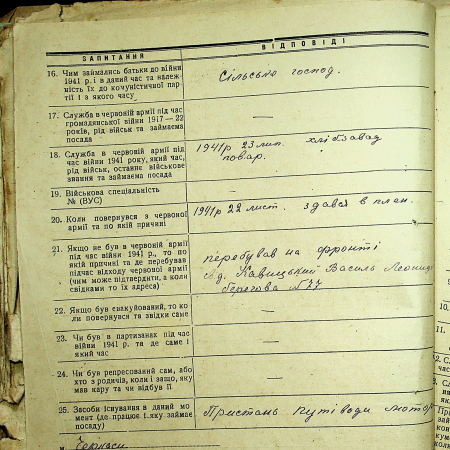 ЗАПИТАННЯ
ВІДПОВІДІ
16. Чим займались батьки до війни
1941 р. і в даний час та належ-
ність їх до комуністичної пар-
тії і з якого часу
Сільське господ.
17. Служба в червоній армії під час
громадянської війни 1917—22
років, рід військ та займаєма
посада
—
18. Служба в червоній армії під
час війни 1941 року, який час,
рід військ, останнє військове
звання та займаєма посада
1941р 23 лип. хлібзавод
повар.
19. Військова спеціальність
№ (ВУС)
—
20. Коли повернувся з червоної
армії та по якій причині
1941р 28 лист. здався в плен.
21. Якщо не був в червоній армії
під час війни 1941 р., то по
якій причині та де перебував
підчас відходу червоної армії
(чим може підтвердити, а коли
свідками то їх адреса)
перебував на фронті
Василь
берегова №77
22. Якщо був евакуйований, то ко-
ли повернувся та звідки саме
—
23. Чи був в партизанах під час
війни 1941 р. та де саме і
який час
—
24. Чи був репресований сам, або
хто з родичів, коли і защо, яку
мав кару та чи відбув її
—
25. Засоби існування в даний мо-
мент (де працює і яку займає
посаду)
Пристань
м. Черкаси
10.
11.